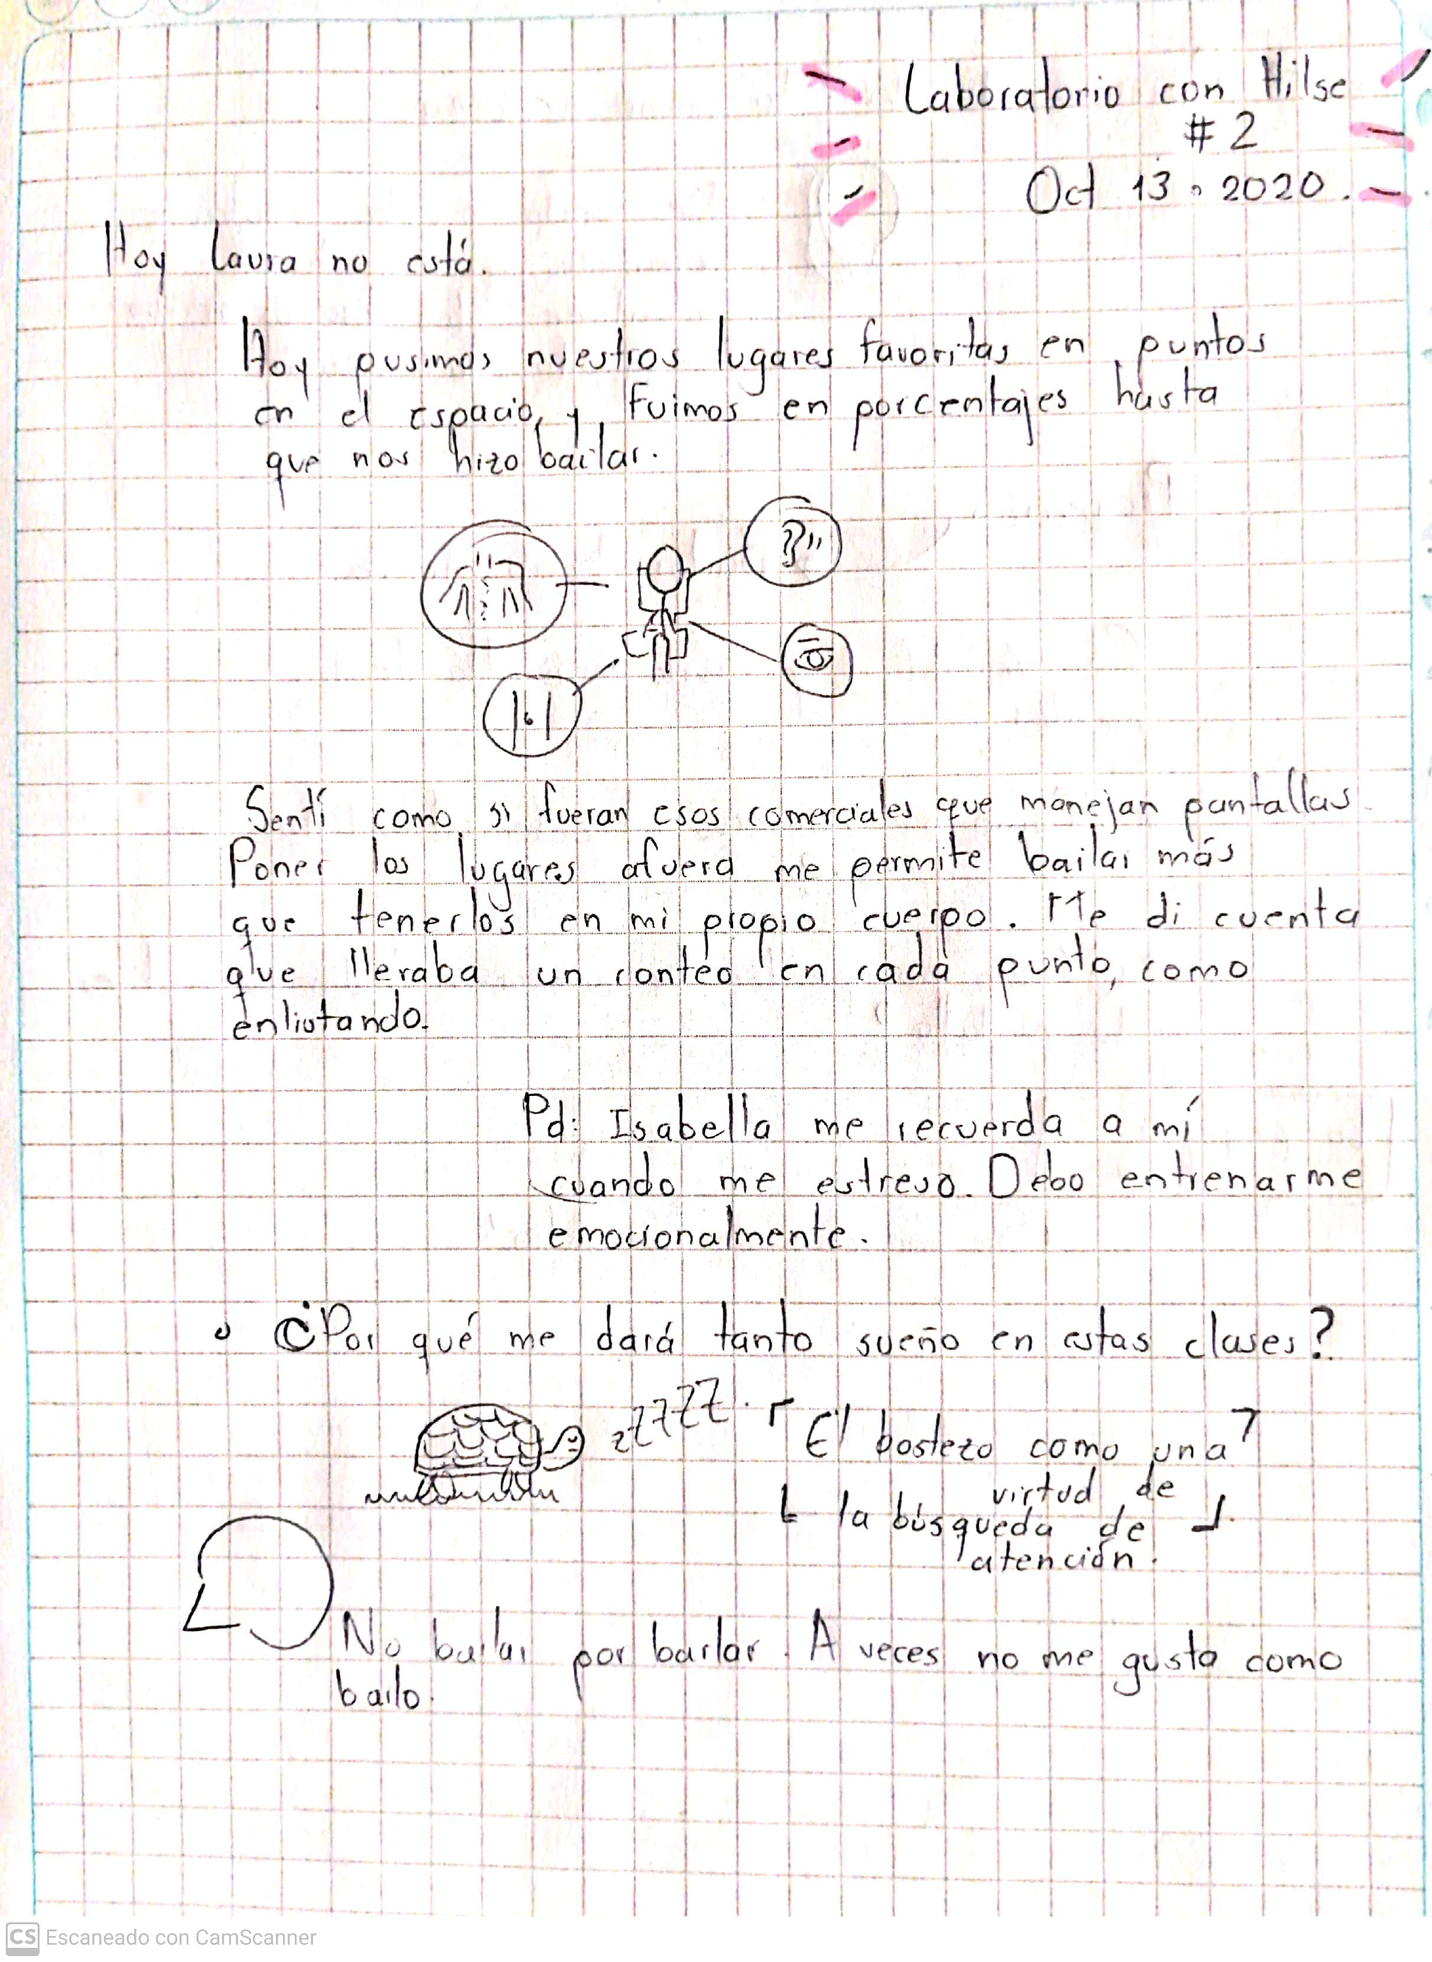 Laboratorio con Hilse
# 2
Oct 13 · 2020.
Hoy Laura no está.
Hoy pusimos nuestros lugares favoritas en puntos
en el espacio, y fuimos en porcentajes hasta
que nos hizo bailar.
Sentí como si fueran esos comerciales que manejan pantallas.
Poner los lugares afuera me permite bailar más
que tenerlos en mi propio cuerpo. Me di cuenta
que lleraba un conteo en cada punto, como
enlistando.
Pd: Isabella me recuerda a mí
cuando me estreso. Debo entrenarme
emocionalmente.
• ¿Por qué me dará tanto sueño en estas clases?
zZZZZ.
El bostezo como una
virtud de
la búsqueda de
atención.
No bailar por bailar. A veces no me gusta como
bailo.
CS Escaneado con CamScanner